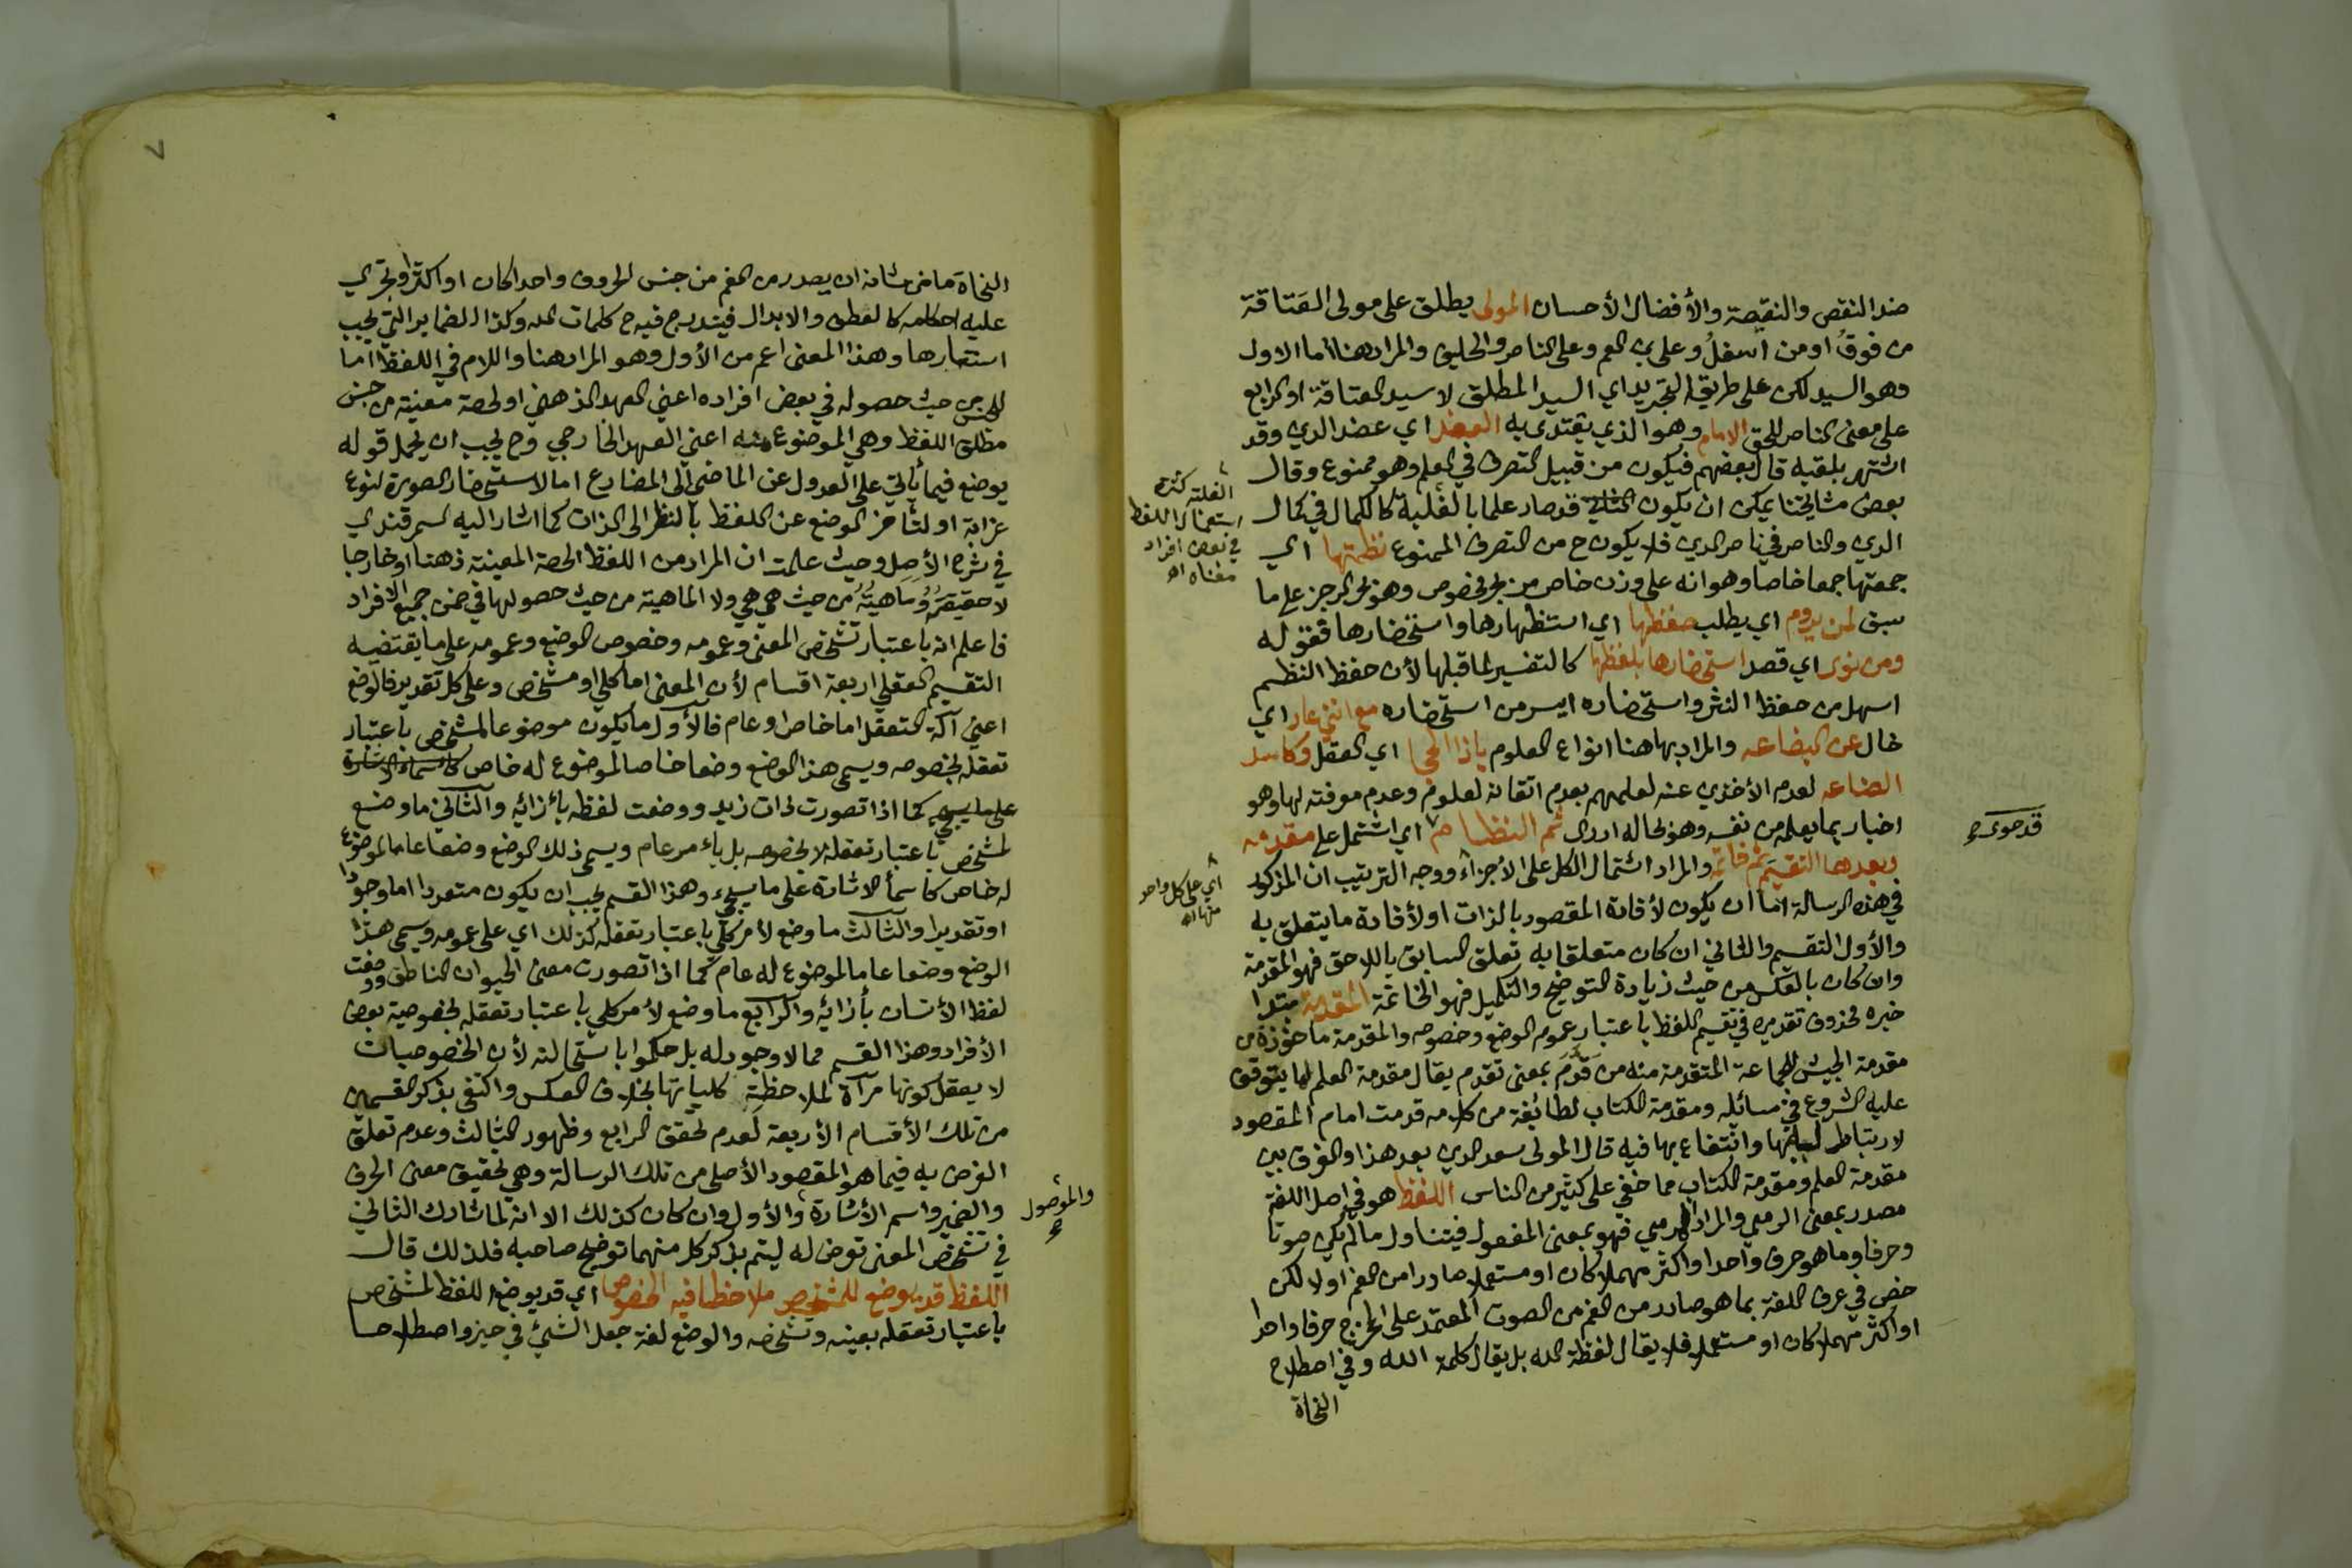 ضد النقص والنقيصة والأفضال الأحسان المولى يطلق على مولى العتاقة
من فوقُ او من اسفلُ وعلى بن العم وعلى الناصر والحليف والمراد هنا اما الاول
وهو السيد لكن على طريق التجريد اي السيد المطلق لا سيد العتاقة او الرابع
على معنى الناصر للحق الامام وهو الذي يقتدى به العضد اي عضد الدين وقد
اشتهر بلقبه قال بعضهم فيكون من قبيل التصرف في العلم وهو ممنوع وقال
بعض مشايخنا يمكن ان يكون قد صار علما بالغلبة كالكمال في كمال
الدين والناصر في ناصر الدين فلا يكون ح من التصرف الممنوع نظمتها اي
جمعتها جمعا خاصا وهو انه على وزن خاص من بحر مخصوص وهو بحر الرجز على ما
سبق لمن يروم اي يطلب حفظها اي استظهارها واستحضارها فقوله
ومن نوى اي قصد استحضارها بلفظها كالتفسير لما قبلها لأن حفظ النظم
اسهل من حفظ النثر واستحضاره ايسر من استحضاره مع انني عار اي
خال عن البضاعه والمراد بها هنا انواع العلوم ياذا الحجا اي العقل وكاسد
الصناعه لعدم الأخذين عنه لعلمهم بعدم اتقانه لعلوم وعدم معرفته لها وهو
اخبار بما يعلمه من نفسه وهو بحاله ادرى ثم النظام اي اشتمل على مقدمه
وبعدها التقسيم ثم خاتمه والمراد اشتمال الكل على الأجزاء ووجه الترتيب ان المذكور
في هذه الرسالة اما ان يكون لأفادة المقصود بالذات او لأفادة ما يتعلق به
والأول التقسيم والثاني ان كان متعلقا به تعلق السابق باللاحق فهو المقدمة
وان كان بالعكس من حيث زيادة التوضيح والتكميل فهو الخاتمة المقدمة مبتدا
خبره محذوف تقديره في تقسيم اللفظ باعتبار عموم الوضع وخصوصه والمقدمة ماخوذة من
مقدمة الجيش للجماعة المتقدمة منه من قدَّمَ بمعنى تقدم يقال مقدمة العلم لما يتوقف
عليه الشروع في مسائله ومقدمة الكتاب لطائفة من كلامه قدمت امام المقصود
لارتباط له بها وانتفاع بها فيه قال المولى سعد الدين بعد هذا والفرق بين
مقدمة العلم ومقدمة الكتاب مما خفي على كثير من الناس اللفظ هو في اصل اللغة
مصدر بمعنى الرمي والمراد المرمي فهو بمعنى المفعول فيتناول ما لم يكن صوتا
وحرفا وما هو حرف واحد او اكثر مهملا كان او مستعملا صادرا من الفم او لا لكن
خص في عرف اللغة بما هو صادر من الفم من الصوت المعتمد على المخرج حرفا واحدا
او اكثر مهملا كان او مستعملا فلا يقال لفظة الله بل يقال كلمة الله وفي اصطلاح
النحاة
الغلبة كثرة
استعمال اللفظ
في بعض افراد
معناه اه
اي على كل واحد
منها اه
قد حوى صح
٧
النحاة ما من شانه ان يصدر من الفم من جنس الحروف واحدا كان او اكثر او تجري
عليه احكامه كالعطف والابدال فيندرج فيه ح كلمات الله وكذا الضماير التي يجب
استتارها وهذا المعنى اعم من الأول وهو المراد هنا واللام في اللفظ اما
للجنس من حيث حصوله في بعض افراده اعني العهد الذهني او لحصة معينة من جنس
مطلق اللفظ وهي الموضوع منه اعني العهد الخارجي وح يجب ان يحمل قوله
يوضع فيما يأتي على العدول عن الماضي الى المضارع اما لاستحضار الصورة لنوع
غرابة او لتأخر الوضع عن اللفظ بالنظر الى الذات كما اشار اليه السمرقندي
في شرح الأصل وحيث علمت ان المراد من اللفظ الحصة المعينة ذهنا او خارجا
لا حقيقتُهُ وماهيتُهُ من حيث هي هي ولا الماهية من حيث حصولها في ضمن جميع الافراد
فاعلم انه باعتبار تشخص المعنى وعمومه وخصوص الوضع وعمومه على ما يقتضيه
التقسيم العقلي اربعة اقسام لأن المعنى اما كلي او مشخص وعلى كل تقدير فالوضع
اعني آلة التعقل اما خاص او عام فالأول ما يكون موضوعا لمشخص باعتبار
تعقله بخصوصه ويسمى هذا الوضع وضعا خاصا لموضوع له خاص كاسماء الاشارة
على ما سيجيء كما اذا تصورت ذات زيد ووضعت لفظه بأزائه والثاني ما وضع
لمشخص باعتبار تعقله لا بخصوصه بل بامر عام ويسمى ذلك الوضع وضعا عاما لموضوع
له خاص كاسمأ الاشارة على ما سيجيء وهذا القسم يجب ان يكون متعددا اما وجودا
او تقديرا والثالث ما وضع لأمر كلي باعتبار تعقله كذلك اي على عمومه ويسمى هذا
الوضع وضعا عاما لموضوع له عام كما اذا تصورت معنى الحيوان الناطق ووضعت
لفظ الأنسان بأزائه والرابع ما وضع لأمر كلي باعتبار تعقله بخصوصية بعض
الأفراد وهذا القسم مما لا وجود له بل حكموا باستحالته لأن الخصوصيات
لا يعقل كونها مرآة لملاحظة كلياتها بخلاف العكس واكتفى بذكر القسمين
من تلك الأقسام الأربعة لعدم تحقق الرابع وظهور الثالث وعدم تعلق
الغرض به فيما هو المقصود الأصلي من تلك الرسالة وهي تحقيق معنى الحرف
والضمير واسم الأشارة والأول وان كان كذلك الا انه لما شارك الثاني
في تشخص المعنى تعرض له ليتم بذكر كل منهما توضيح صاحبه فلذلك قال
اللفظ قد يوضع للمشخص ملاحظا فيه الخصوص اي قد يوضع اللفظ لمشخص
باعتبار تعقله بعينه وتشخصه والوضع لغة جعل الشيئ في حيز واصطلاحا
والموصول
صح